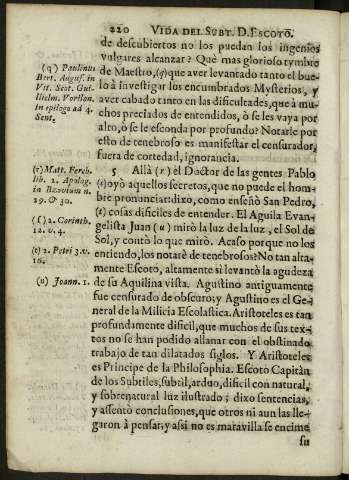 220 VIDA DEL SUBT. D. ESCOTO.
de descubiertos no los puedan los ingenios
vulgares alcanzar? Què mas glorioso tymbre
de Maestro, (q) que aver levantado tanto el bue-
lo à investigar los encumbrados Mysterios, y
aver cabado tanto en las dificultades, que à mu-
chos preciados de entendidos, ò se les vaya por
alto, ò se le esconda por profundo? Notarle por
esto de tenebroso es manifestar el censurador,
fuera de cortedad, ignorancia.
5 Allà (r) el Doctor de las gentes Pablo
(s) oyò aquellos secretos, que no puede el hom-
bre pronunciar: dixo, como enseñò San Pedro,
(t) cosas dificiles de entender. El Aguila Evan-
gelista Juan (u) mirò la luz de la luz, el Sol de
Sol, y contò lo que mirò. Acaso porque no los
entiendo, los notarè de tenebrosos? No tan alta-
mente Escoto, altamente si levantò la agudeza
de su Aquilina vista. Agustino antiguamente
fue censurado de obscuro; y Agustino es el Ge-
neral de la Milicia Escolastica. Aristoteles es tan
profundamente dificil, que muchos de sus tex-
tos no se han podido allanar con el obstinado
trabajo de tan dilatados siglos. Y Aristoteles
es Principe de la Philosophia. Escoto Capitàn
de los Subtiles, subtil, arduo, dificil con natural,
y sobrenatural luz ilustrado; dixo sentencias,
y assentò conclusiones, que otros ni aun las lle-
garon à pensar; y assi no es maravilla se encime
su
(q) Paulinus
Bert. August. in
Vit. Scot. Gui-
lielm. Vorilon.
in epilogo ad 4.
Sent.
(r) Matt. Ferch.
lib. 2. Apolog.
in Bzovium n.
29. & 30.
(s) 2. Corinth.
12. v. 4.
(t) 2. Petri 3. v.
16.
(u) Joann. 1.